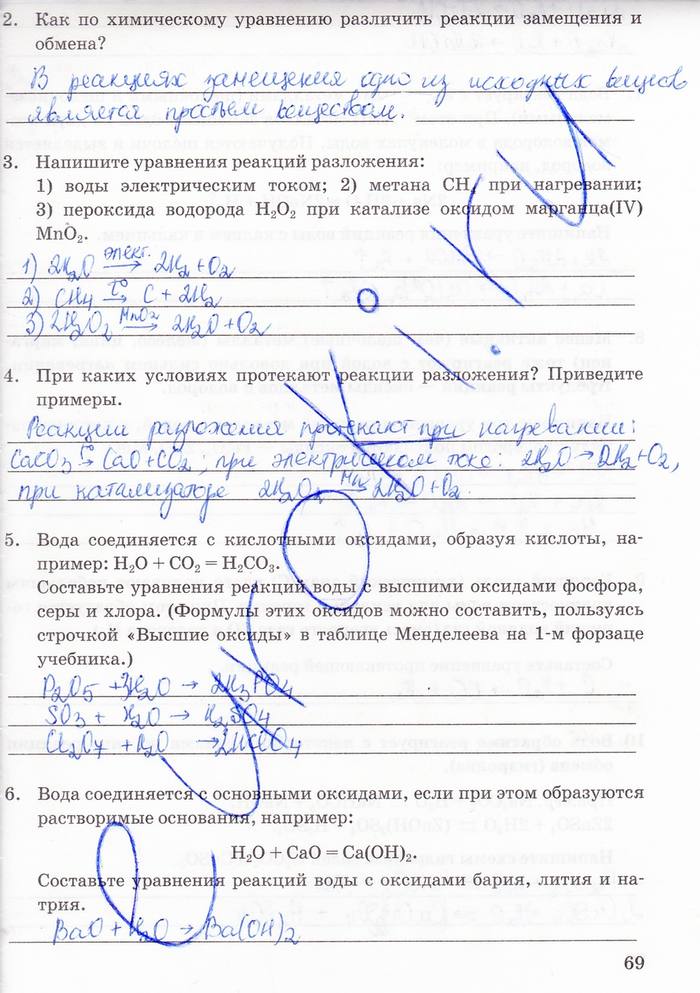 2. Как по химическому уравнению различить реакции замещения и
обмена?
В реакциях замещения одно из исходных веществ
является простым веществом.
3. Напишите уравнения реакций разложения:
1) воды электрическим током; 2) метана CH₄ при нагревании;
3) пероксида водорода H₂O₂ при катализе оксидом марганца(IV)
MnO₂.
1) 2H₂O элект.→ 2H₂ + O₂
2) CH₄ t°→ C + 2H₂
3) 2H₂O₂ MnO₂→ 2H₂O + O₂
4. При каких условиях протекают реакции разложения? Приведите
примеры.
Реакции разложения протекают при нагревании:
CaCO₃ t°→ CaO + CO₂; при электрическом токе: 2H₂O → 2H₂ + O₂,
при катализаторе 2H₂O₂ → 2H₂O + O₂.
5. Вода соединяется с кислотными оксидами, образуя кислоты, на-
пример: H₂O + CO₂ = H₂CO₃.
Составьте уравнения реакций воды с высшими оксидами фосфора,
серы и хлора. (Формулы этих оксидов можно составить, пользуясь
строчкой «Высшие оксиды» в таблице Менделеева на 1-м форзаце
учебника.)
P₂O₅ + 3H₂O → 2H₃PO₄
SO₃ + H₂O → H₂SO₄
Cl₂O₇ + H₂O → 2HClO₄
6. Вода соединяется с основными оксидами, если при этом образуются
растворимые основания, например:
H₂O + CaO = Ca(OH)₂.
Составьте уравнения реакций воды с оксидами бария, лития и на-
трия.
BaO + H₂O → Ba(OH)₂
69